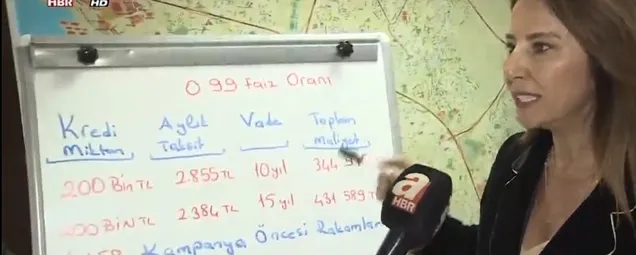 HBR HD
0 99 Faiz Oranı
Kredi Miktarı Aylık Taksit Vade Toplam Maliyet
200 Bin TL 2.855 TL 10 yıl 344
BİN TL 2 384 TL 15 yıl 431 589 T
Kampanya Öncesi Rakamlar
a
HBR